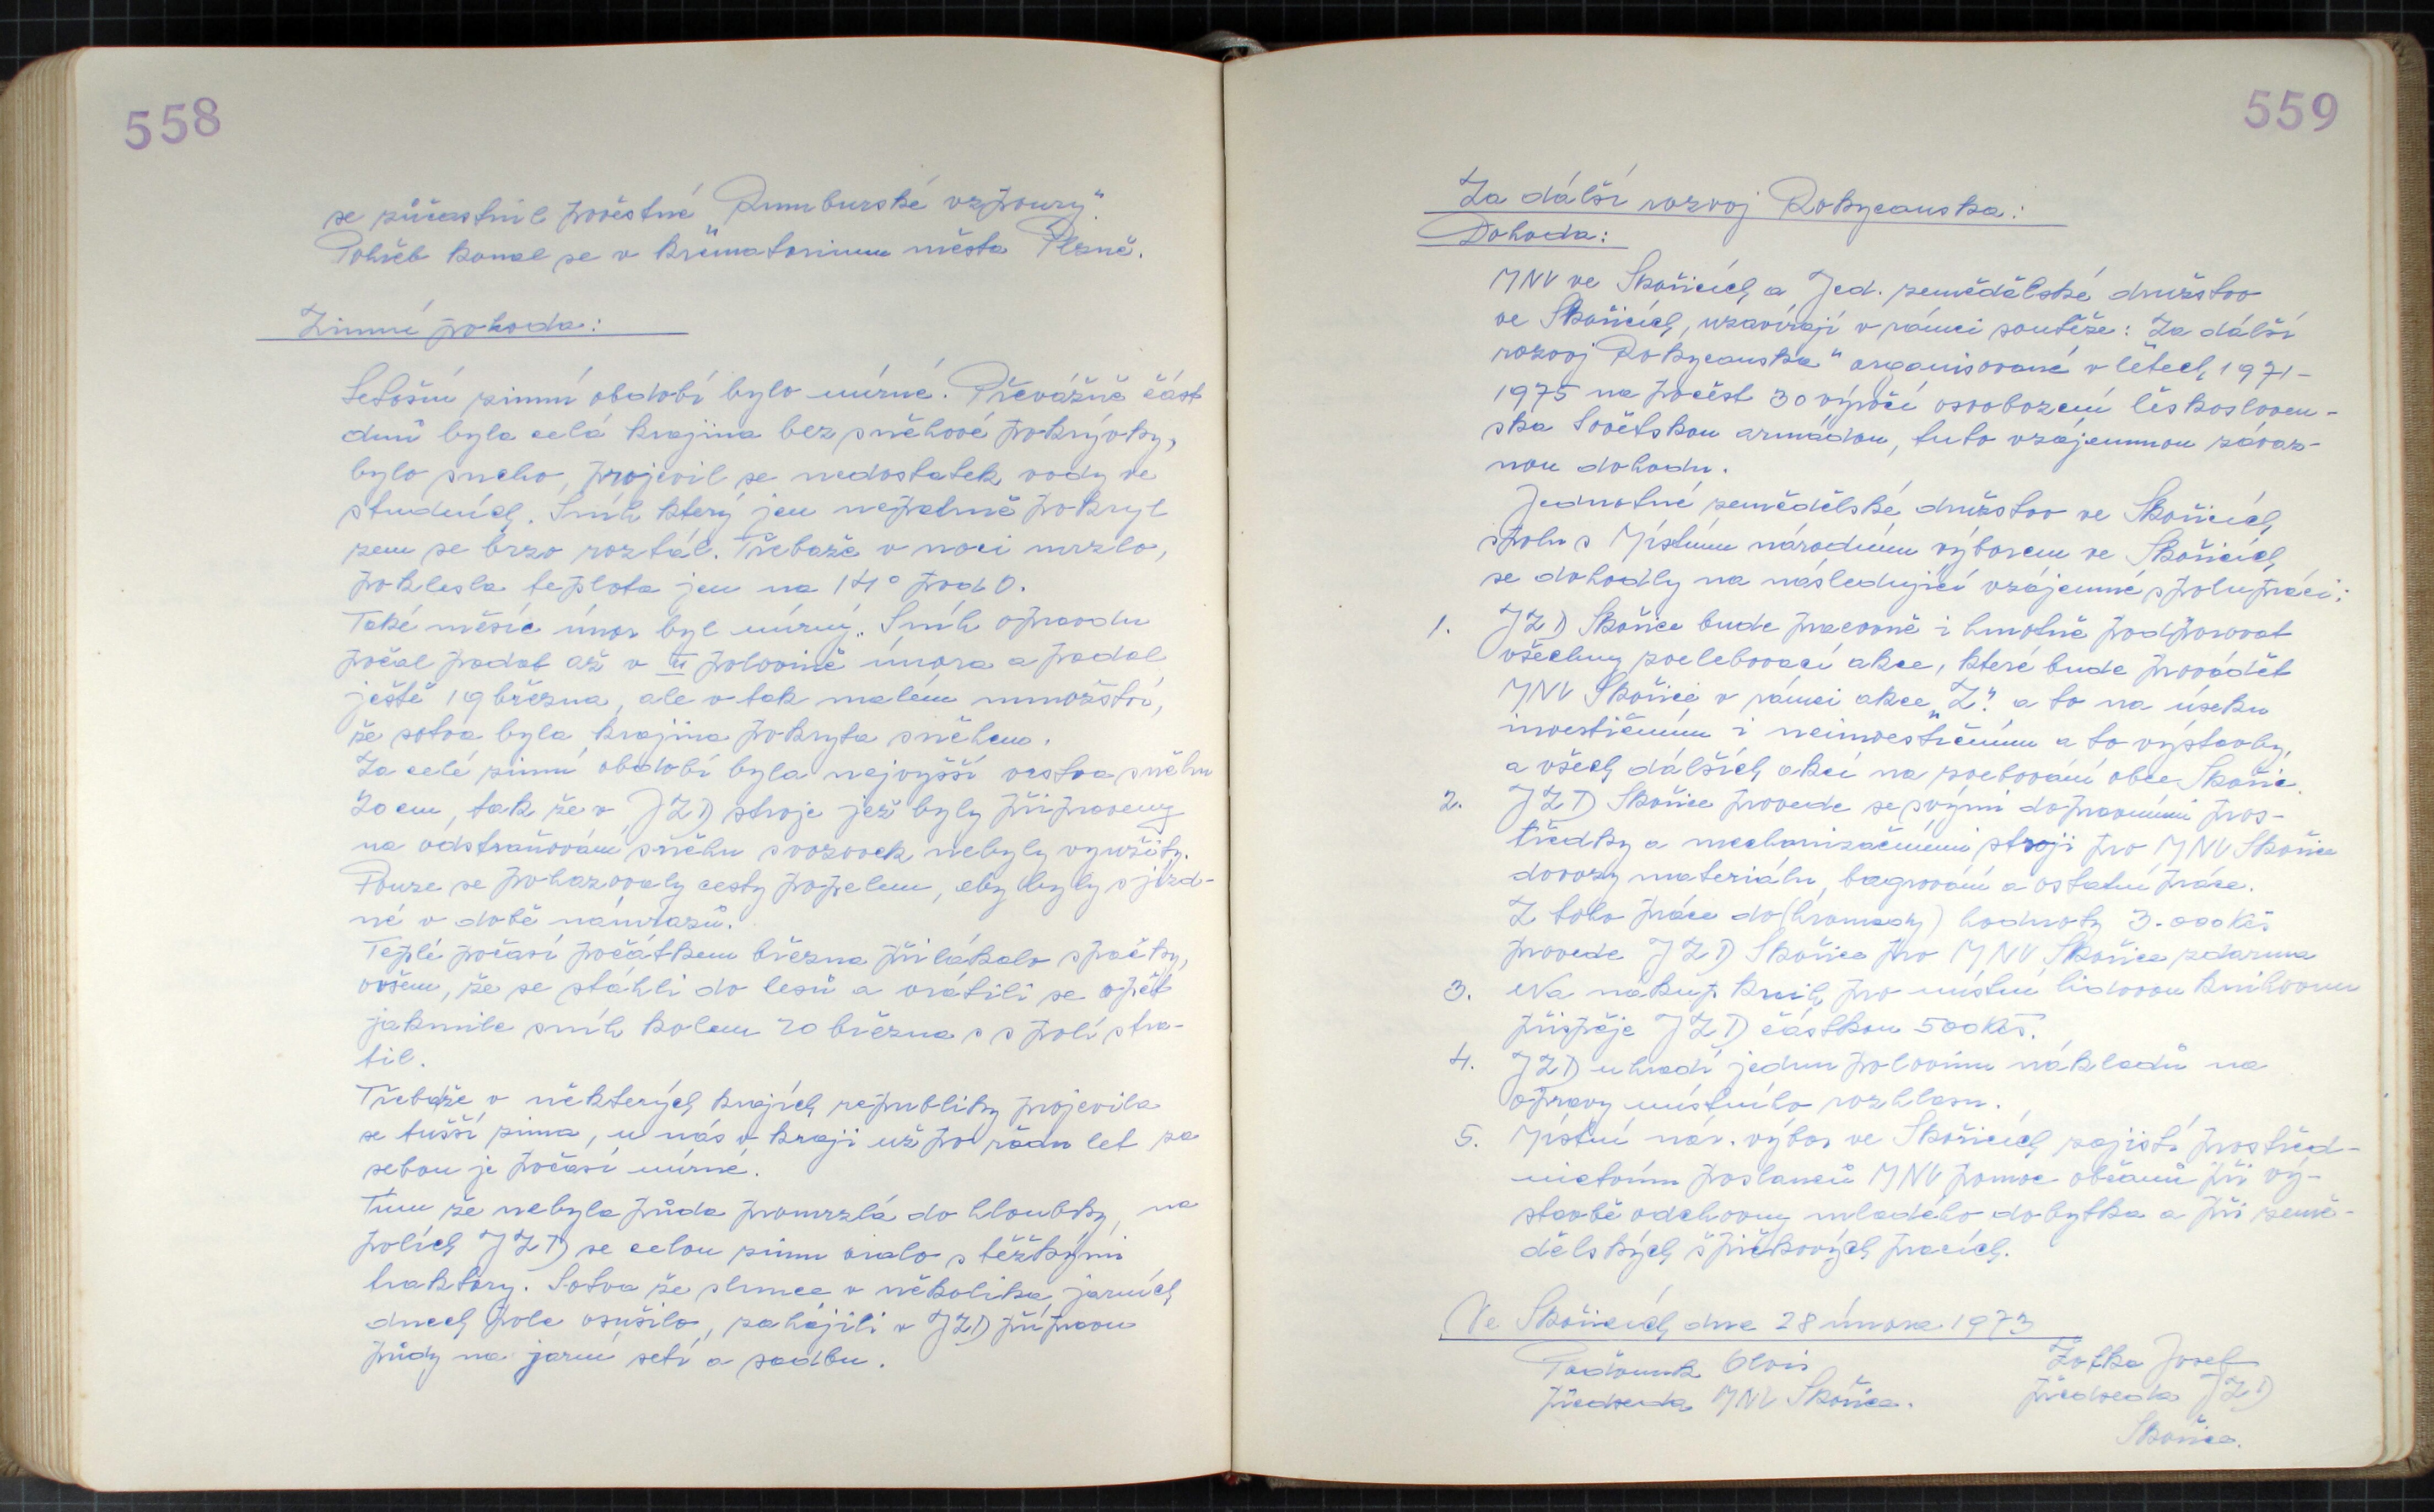 558
se zůčastnil pověstné „Rumburské vzpoury“.
Pohřeb konal se v krematorium města Plzně.
Zimní pohoda:
Letošní zimní období bylo mírné. Převážně část
dnů byla celá krajina bez sněhové pokrývky,
bylo sucho, projevil se nedostatek vody ve
studních. Sníh který jen nepatrně pokryl
zem se brzo roztál. Třebaže v noci mrzlo,
poklesla teplota jen na 14° pod 0.
Také měsíc únor byl mírný. Sníh opravdu
počal padat až v II polovině února a padal
ještě 19 března, ale v tak malém množství,
že sotva byla krajina pokryta sněhem.
Za celé zimní období byla nejvyšší vrstva sněhu
20 cm, tak že v JZD stroje jež byly připraveny
na odstraňování sněhu s vozovek nebyly využity.
Pouze se pohazovaly cesty popelem, aby byly sjízd-
né v době námrazů.
Teplé počasí počátkem března přilákalo špačky,
ovšem, že se stáhli do lesů a vrátili se opět
jakmile sníh kolem 20 března s s polí ztra-
til.
Třebaže v některých krajích republiky projevila
se tužší zima, u nás v kraji už po řádu let za
sebou je počasí mírné.
Tím že nebyla půda promrzlá do hloubky, na
polích JZD se celou zimu oralo s těžkými
traktory. Sotva že slunce v několika jarních
dnech pole osušilo, zahájili v JZD přípravu
půdy na jarní setí a sadbu.
559
Za dálší rozvoj Rokycanska:
Dohoda:
MNV ve Skořicích a Jed. zemědělské družstvo
ve Skořicích, uzavírají v rámci soutěže: Za dálší
rozvoj Rokycanska“ organisované v létech 1971-
1975 na počest 30 výročí osvobození Českosloven-
ska Sovětskou armádou, tuto vzájemnou závaz-
nou dohodu.
Jednotné zemědělské družstvo ve Skořicích
spolu s Místním národním výborem ve Skořicích
se dohodly na následující vzájemné spolupráci:
1. JZD Skořice bude pracovně i hmotně podporovat
všechny zvelebovací akce, které bude provádět
MNV Skořice v rámci akce „Z“ a to na úseku
investičním i neinvestičním a to výstavby,
a všech dálších akcí na zvebování obce Skořic.
2. JZD Skořice provede se svými dopravními pros-
tředky a mechanizačními stroji pro MNV Skořice
dovozy materiálu, bagrování a ostatní práce.
Z toho práce do (hromady) hodnoty 3.000 Kčs
provede JZD Skořice pro MNV Skořice zdarma
3. Na nákup knih pro místní lidovou knihovnu
přispěje JZD částkou 500 Kčs.
4. JZD uhradí jednu polovinu nákladů na
opravy místního rozhlasu.
5. Místní nár. výbor ve Skořicích zajistí prostřed-
nictvím poslanců MNV pomoc občanů při vý-
stavbě odchovny mladého dobytka a při země-
dělských špičkových pracích.
Ve Skořicích dne 28 února 1973
Alois Zotka Josef
předseda MNV Skořice. předseda JZD
Skořice.